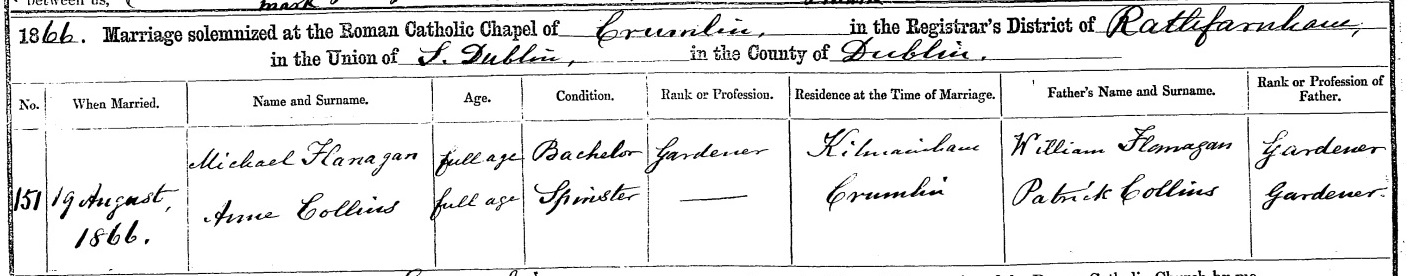 between us,
mark
1866. Marriage solemnized at the Roman Catholic Chapel of Crumlin, in the Registrar's District of Rathfarnham,
in the Union of S. Dublin, in the County of Dublin.
No. When Married. Name and Surname. Age. Condition. Rank or Profession. Residence at the Time of Marriage. Father's Name and Surname. Rank or Profession of Father.
Michael Flanagan full age Bachelor Gardener Kilmainham William Flanagan Gardener
151 19 August, 1866. Anne Collins full age Spinster — Crumlin Patrick Collins Gardener.
Roman Catholic Church by me